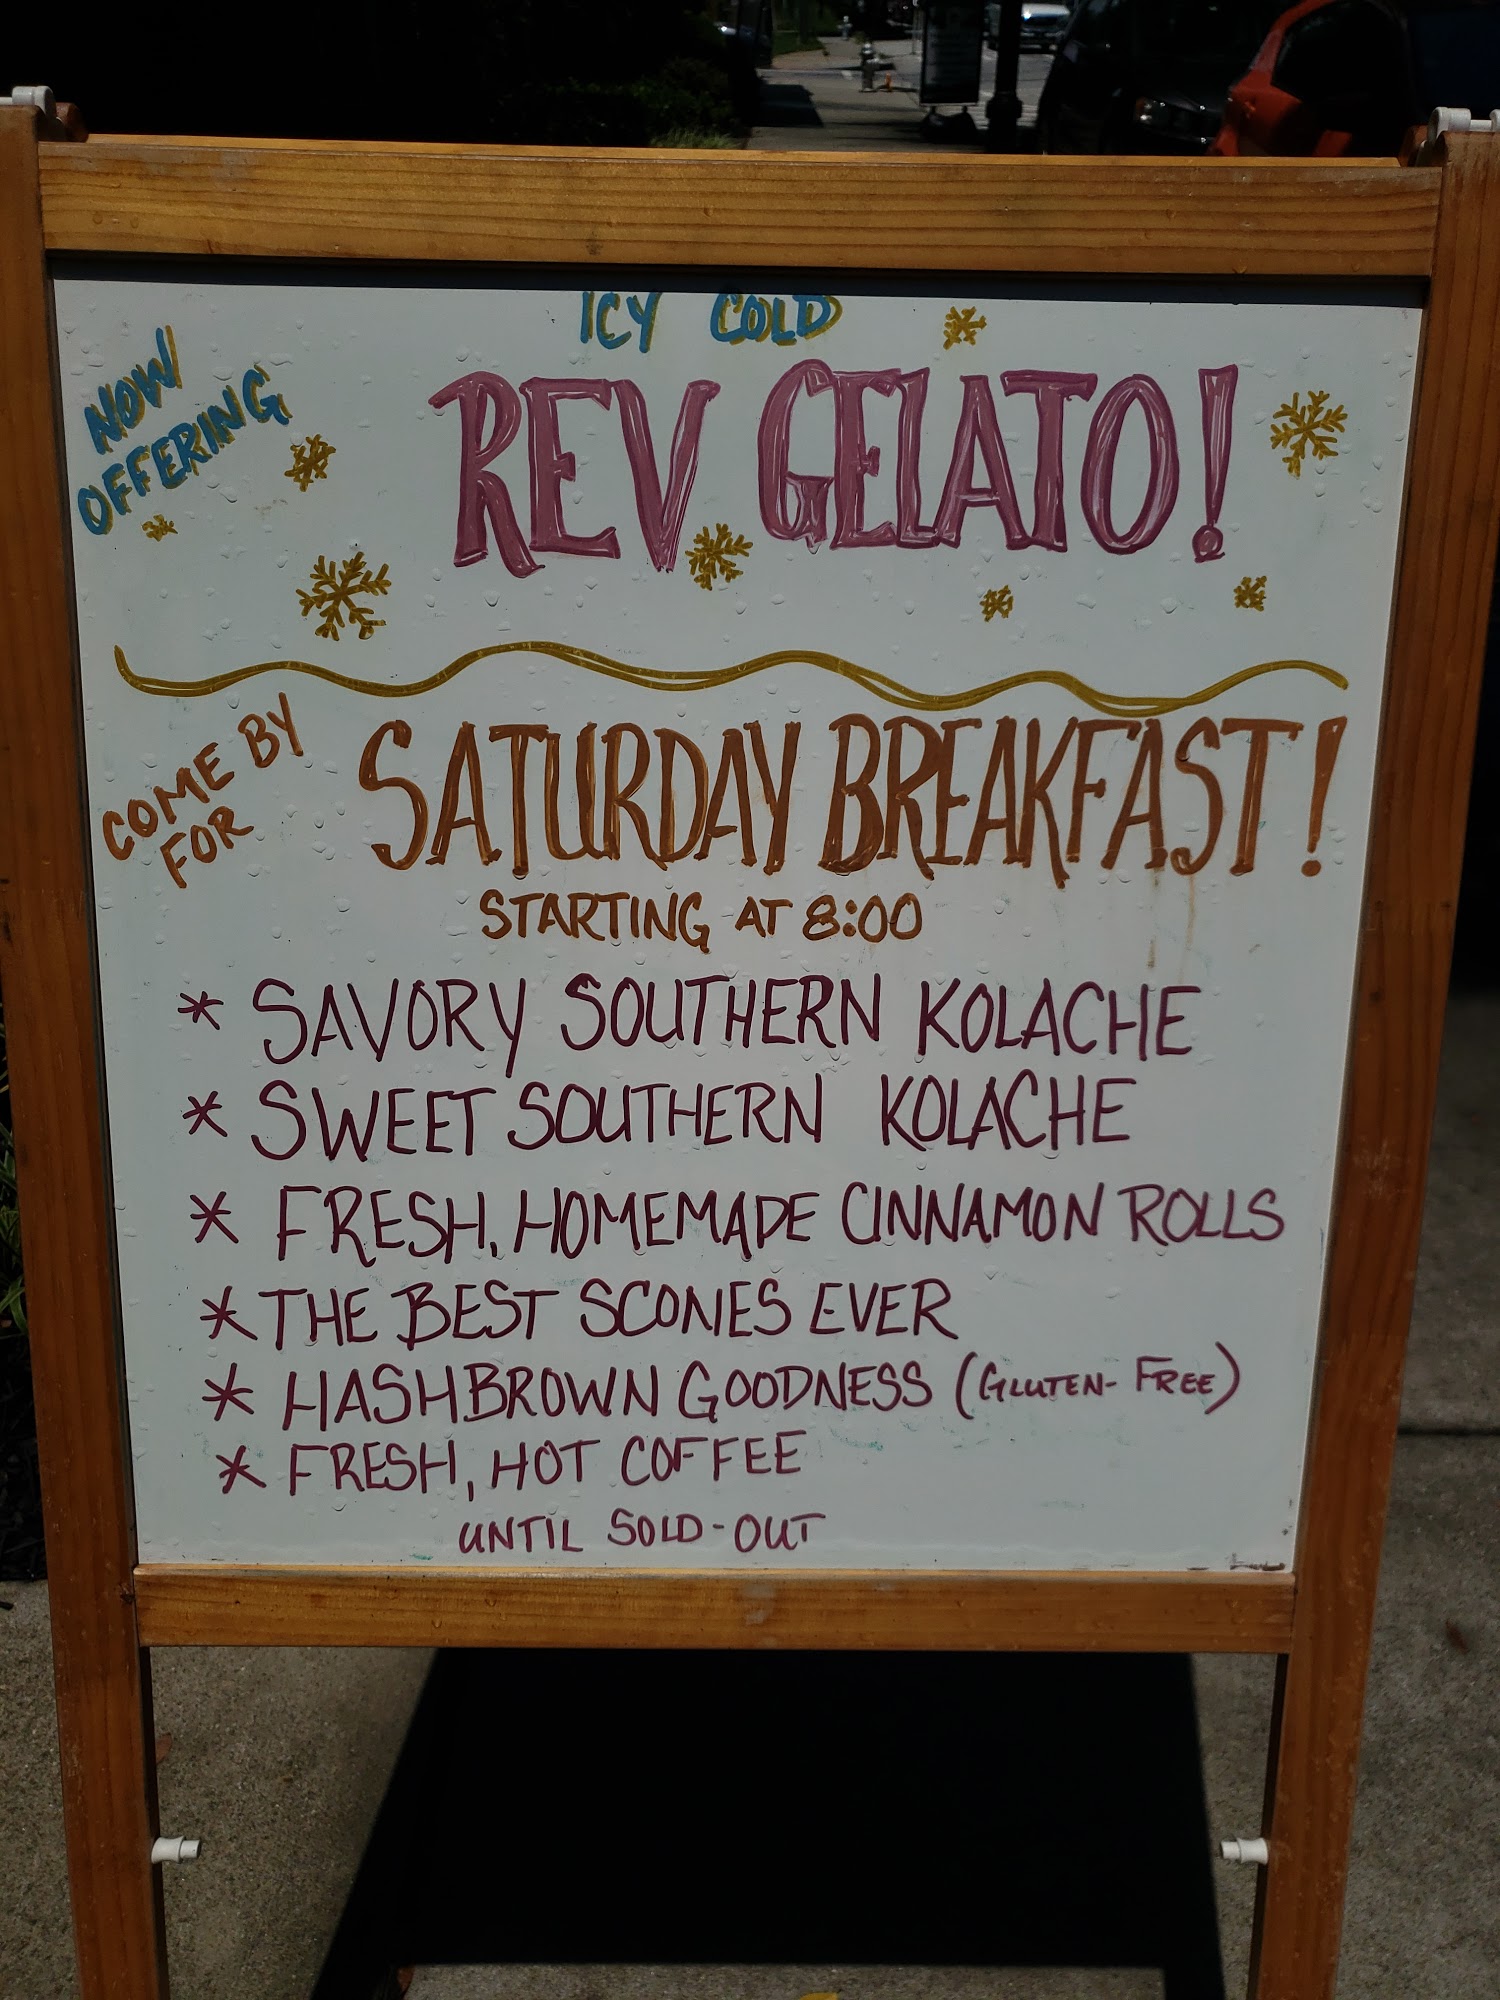 NOW
OFFERING
ICY COLD
REV GELATO!
COME BY
FOR
SATURDAY BREAKFAST!
STARTING AT 8:00
* SAVORY SOUTHERN KOLACHE
* SWEET SOUTHERN KOLACHE
* FRESH, HOMEMADE CINNAMON ROLLS
* THE BEST SCONES EVER
* HASHBROWN GOODNESS (GLUTEN-FREE)
* FRESH, HOT COFFEE
UNTIL SOLD-OUT